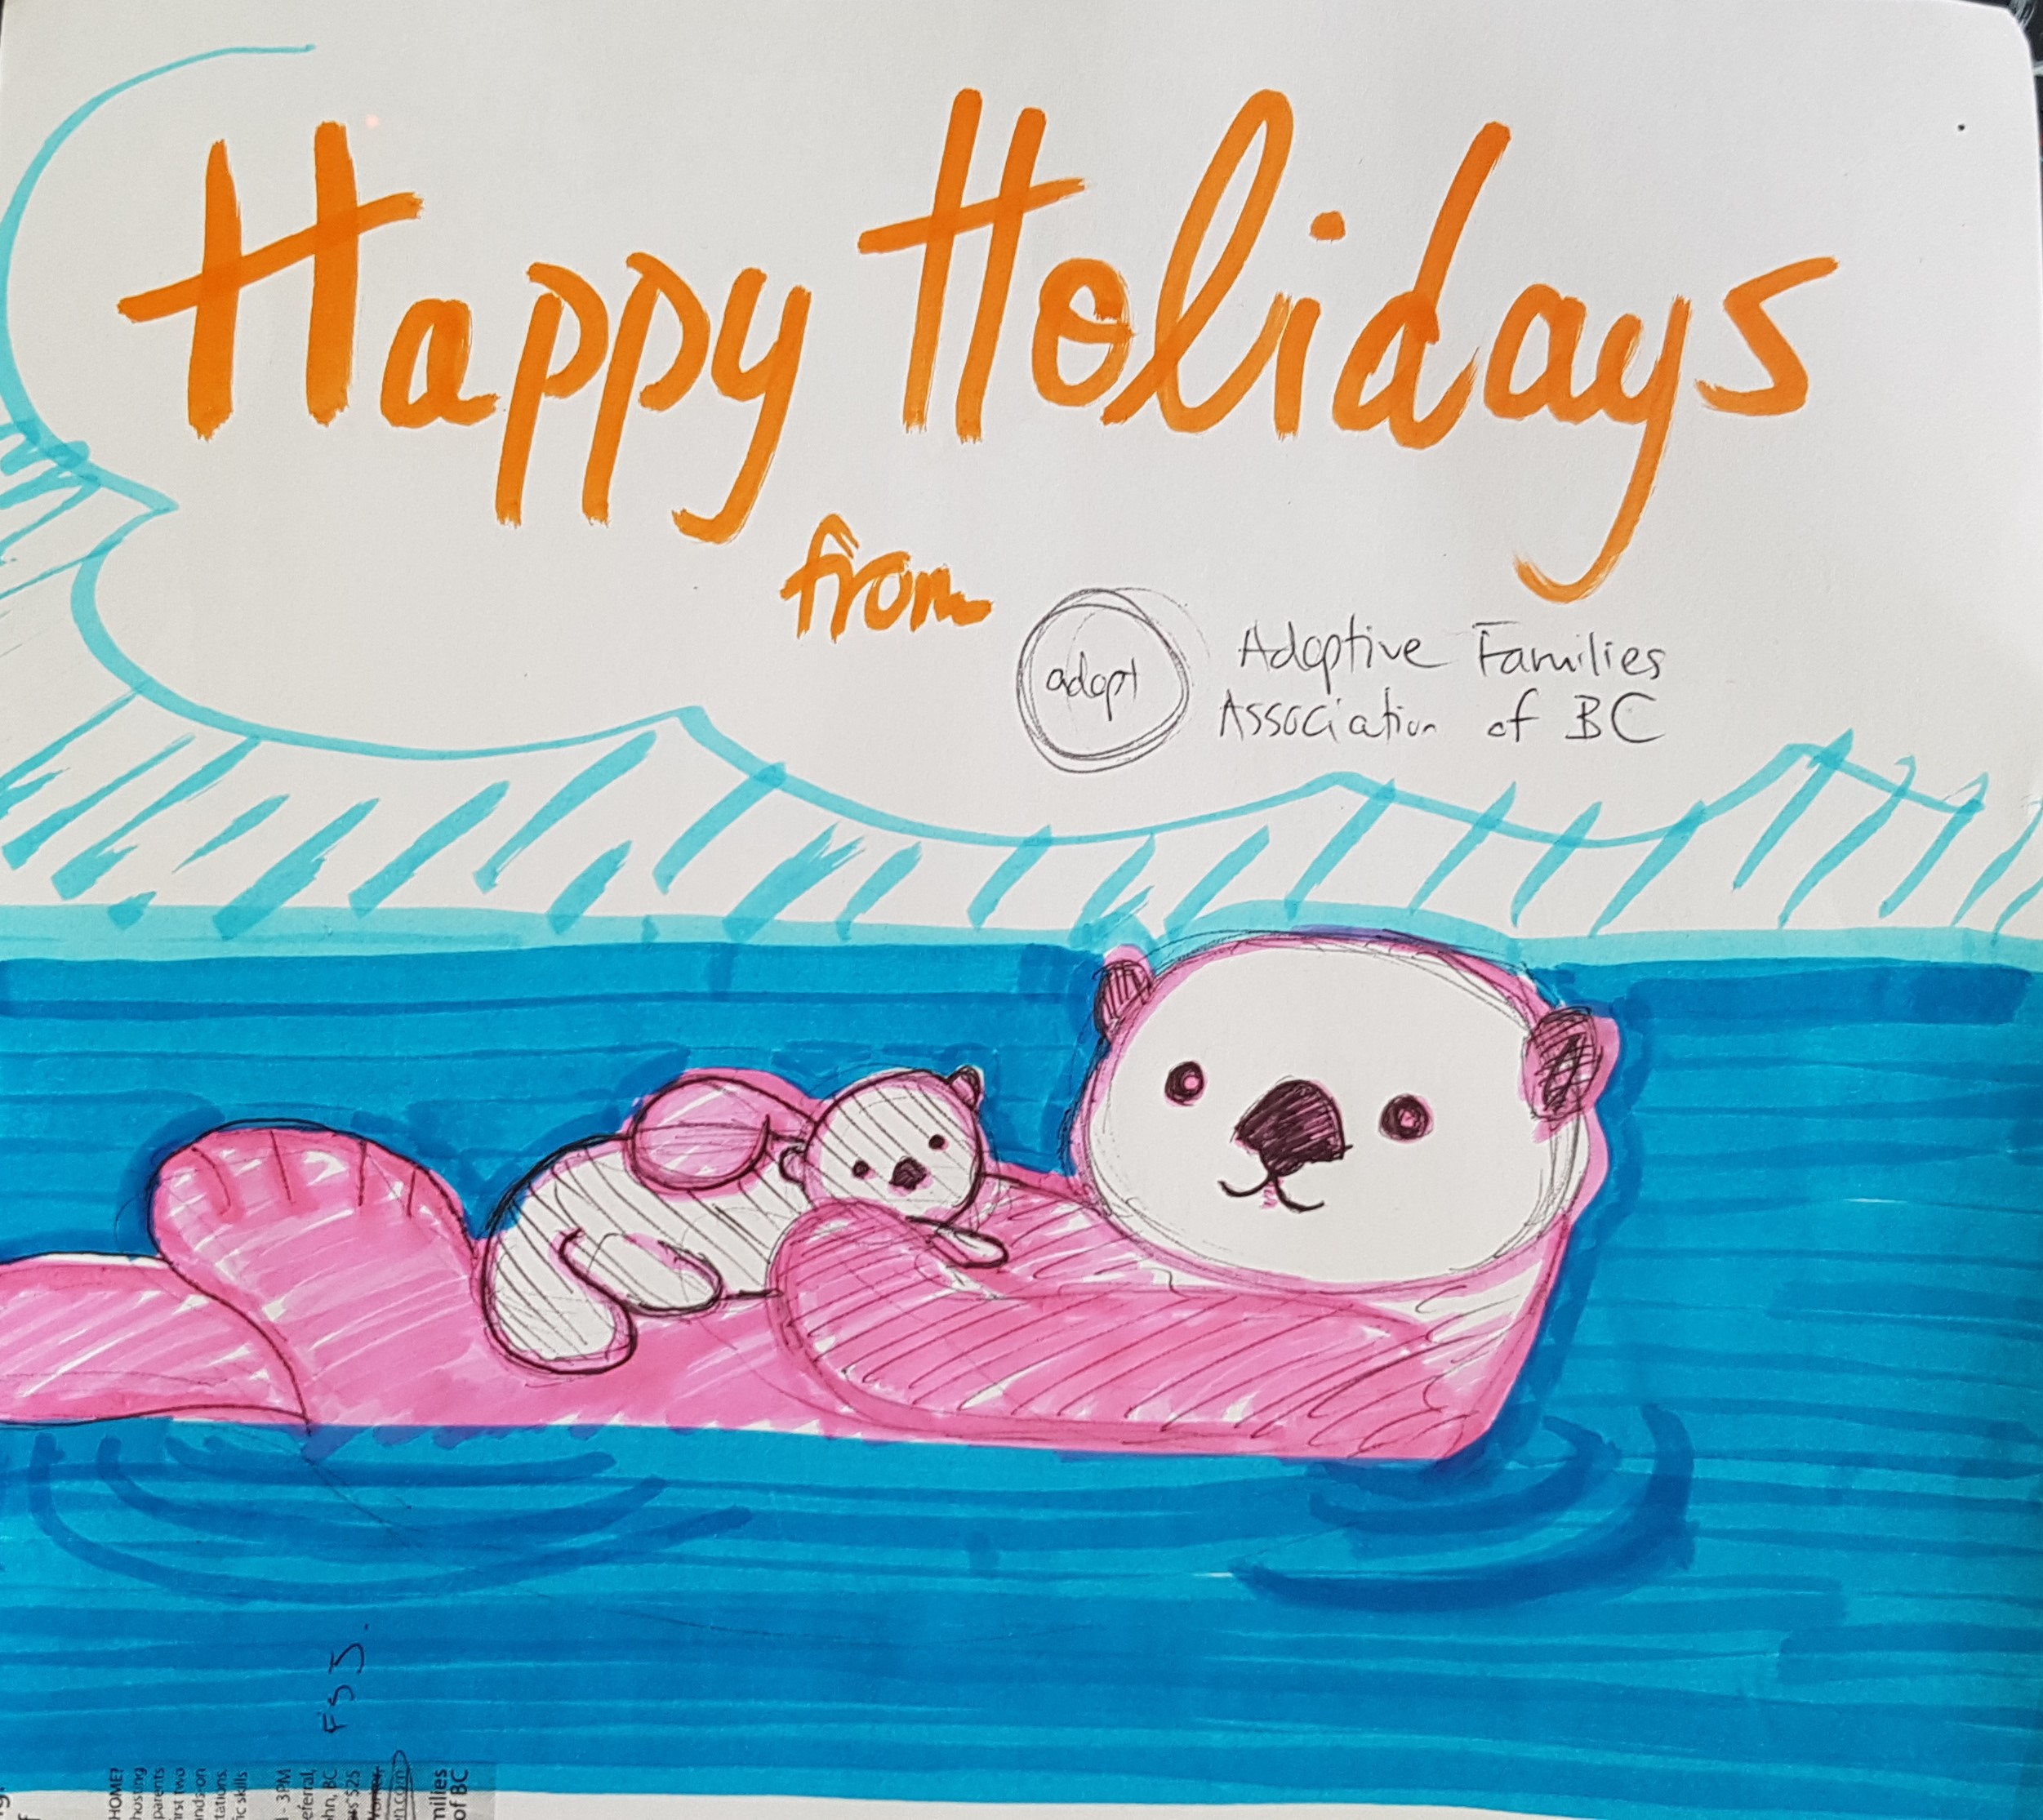 Happy Holidays
from
adopt
Adoptive Families
Association of BC
FSJ.
HOME?
hosting
parents
irst two
ands-on
tations.
ic skills
- 3PM
eferral,
hn, BC
$25
n.com
milies
of BC